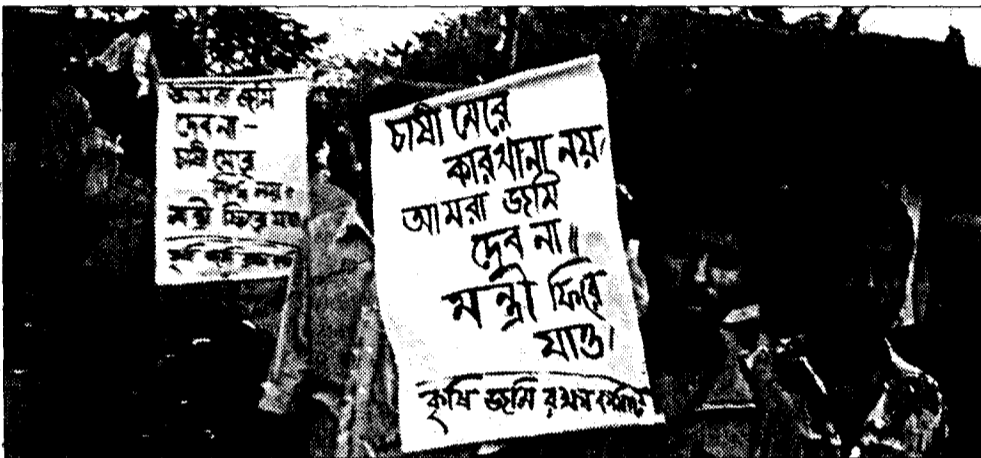 জমি
দেব না -
মেরে
নয়।
মন্ত্রী ফিরে যাও
কৃষি জমি
চাষী মেরে
কারখানা নয়,
আমরা জমি
দেব না॥
মন্ত্রী ফিরে
যাও।
কৃষি জমি রক্ষা কমিটি